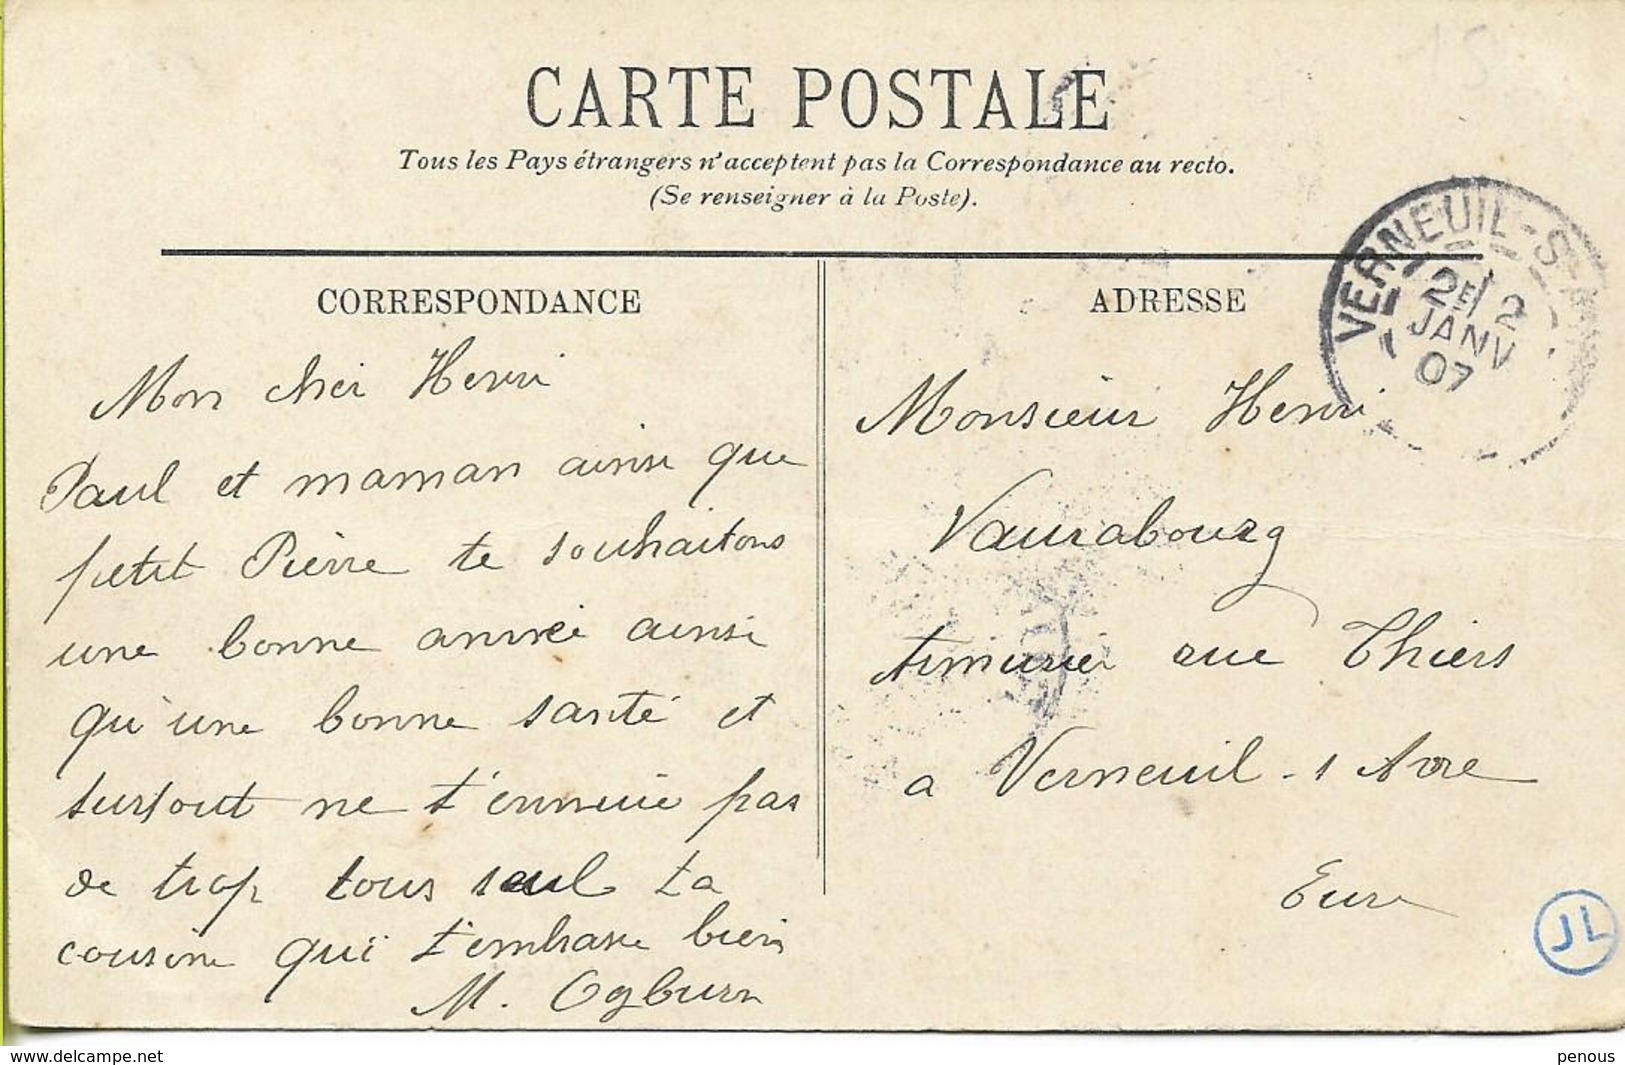 CARTE POSTALE
Tous les Pays étrangers n'acceptent pas la Correspondance au recto.
(Se renseigner à la Poste).
VERNEUIL-S
2E/2
JANV
07
CORRESPONDANCE
Mon cher Henri
Paul et maman ainsi que
petit Pierre te souhaitons
une bonne année ainsi
qu'une bonne santé et
surtout ne t'ennuie pas
de trop tous seul ta
cousine qui t'embrasse bien
M. Ogburn
ADRESSE
Monsieur Henri
Vaurabourg
armurier rue Thiers
a Verneuil-s Avre
Eure
JL
www.delcampe.net
penous